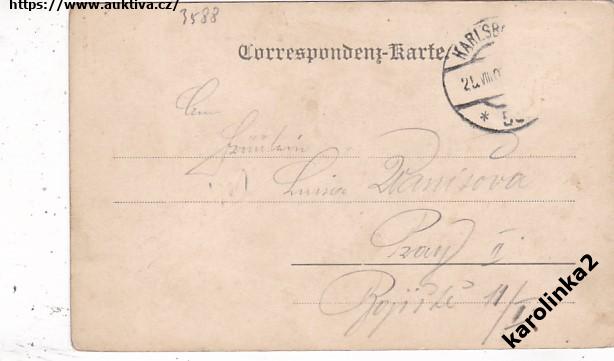 https://www.auktiva.cz/
3588
Correspondenz-Karte.
KARLSB
21.VIII.0
*
An
Fräulein
Luisa Danišova
Prag II
Bojiště 11/I
karolinka2